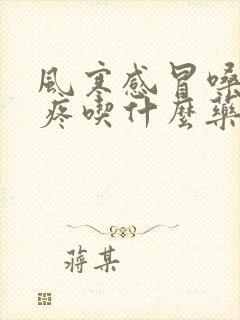 風寒感冒嗓
疼喫什麼藥
蔣某